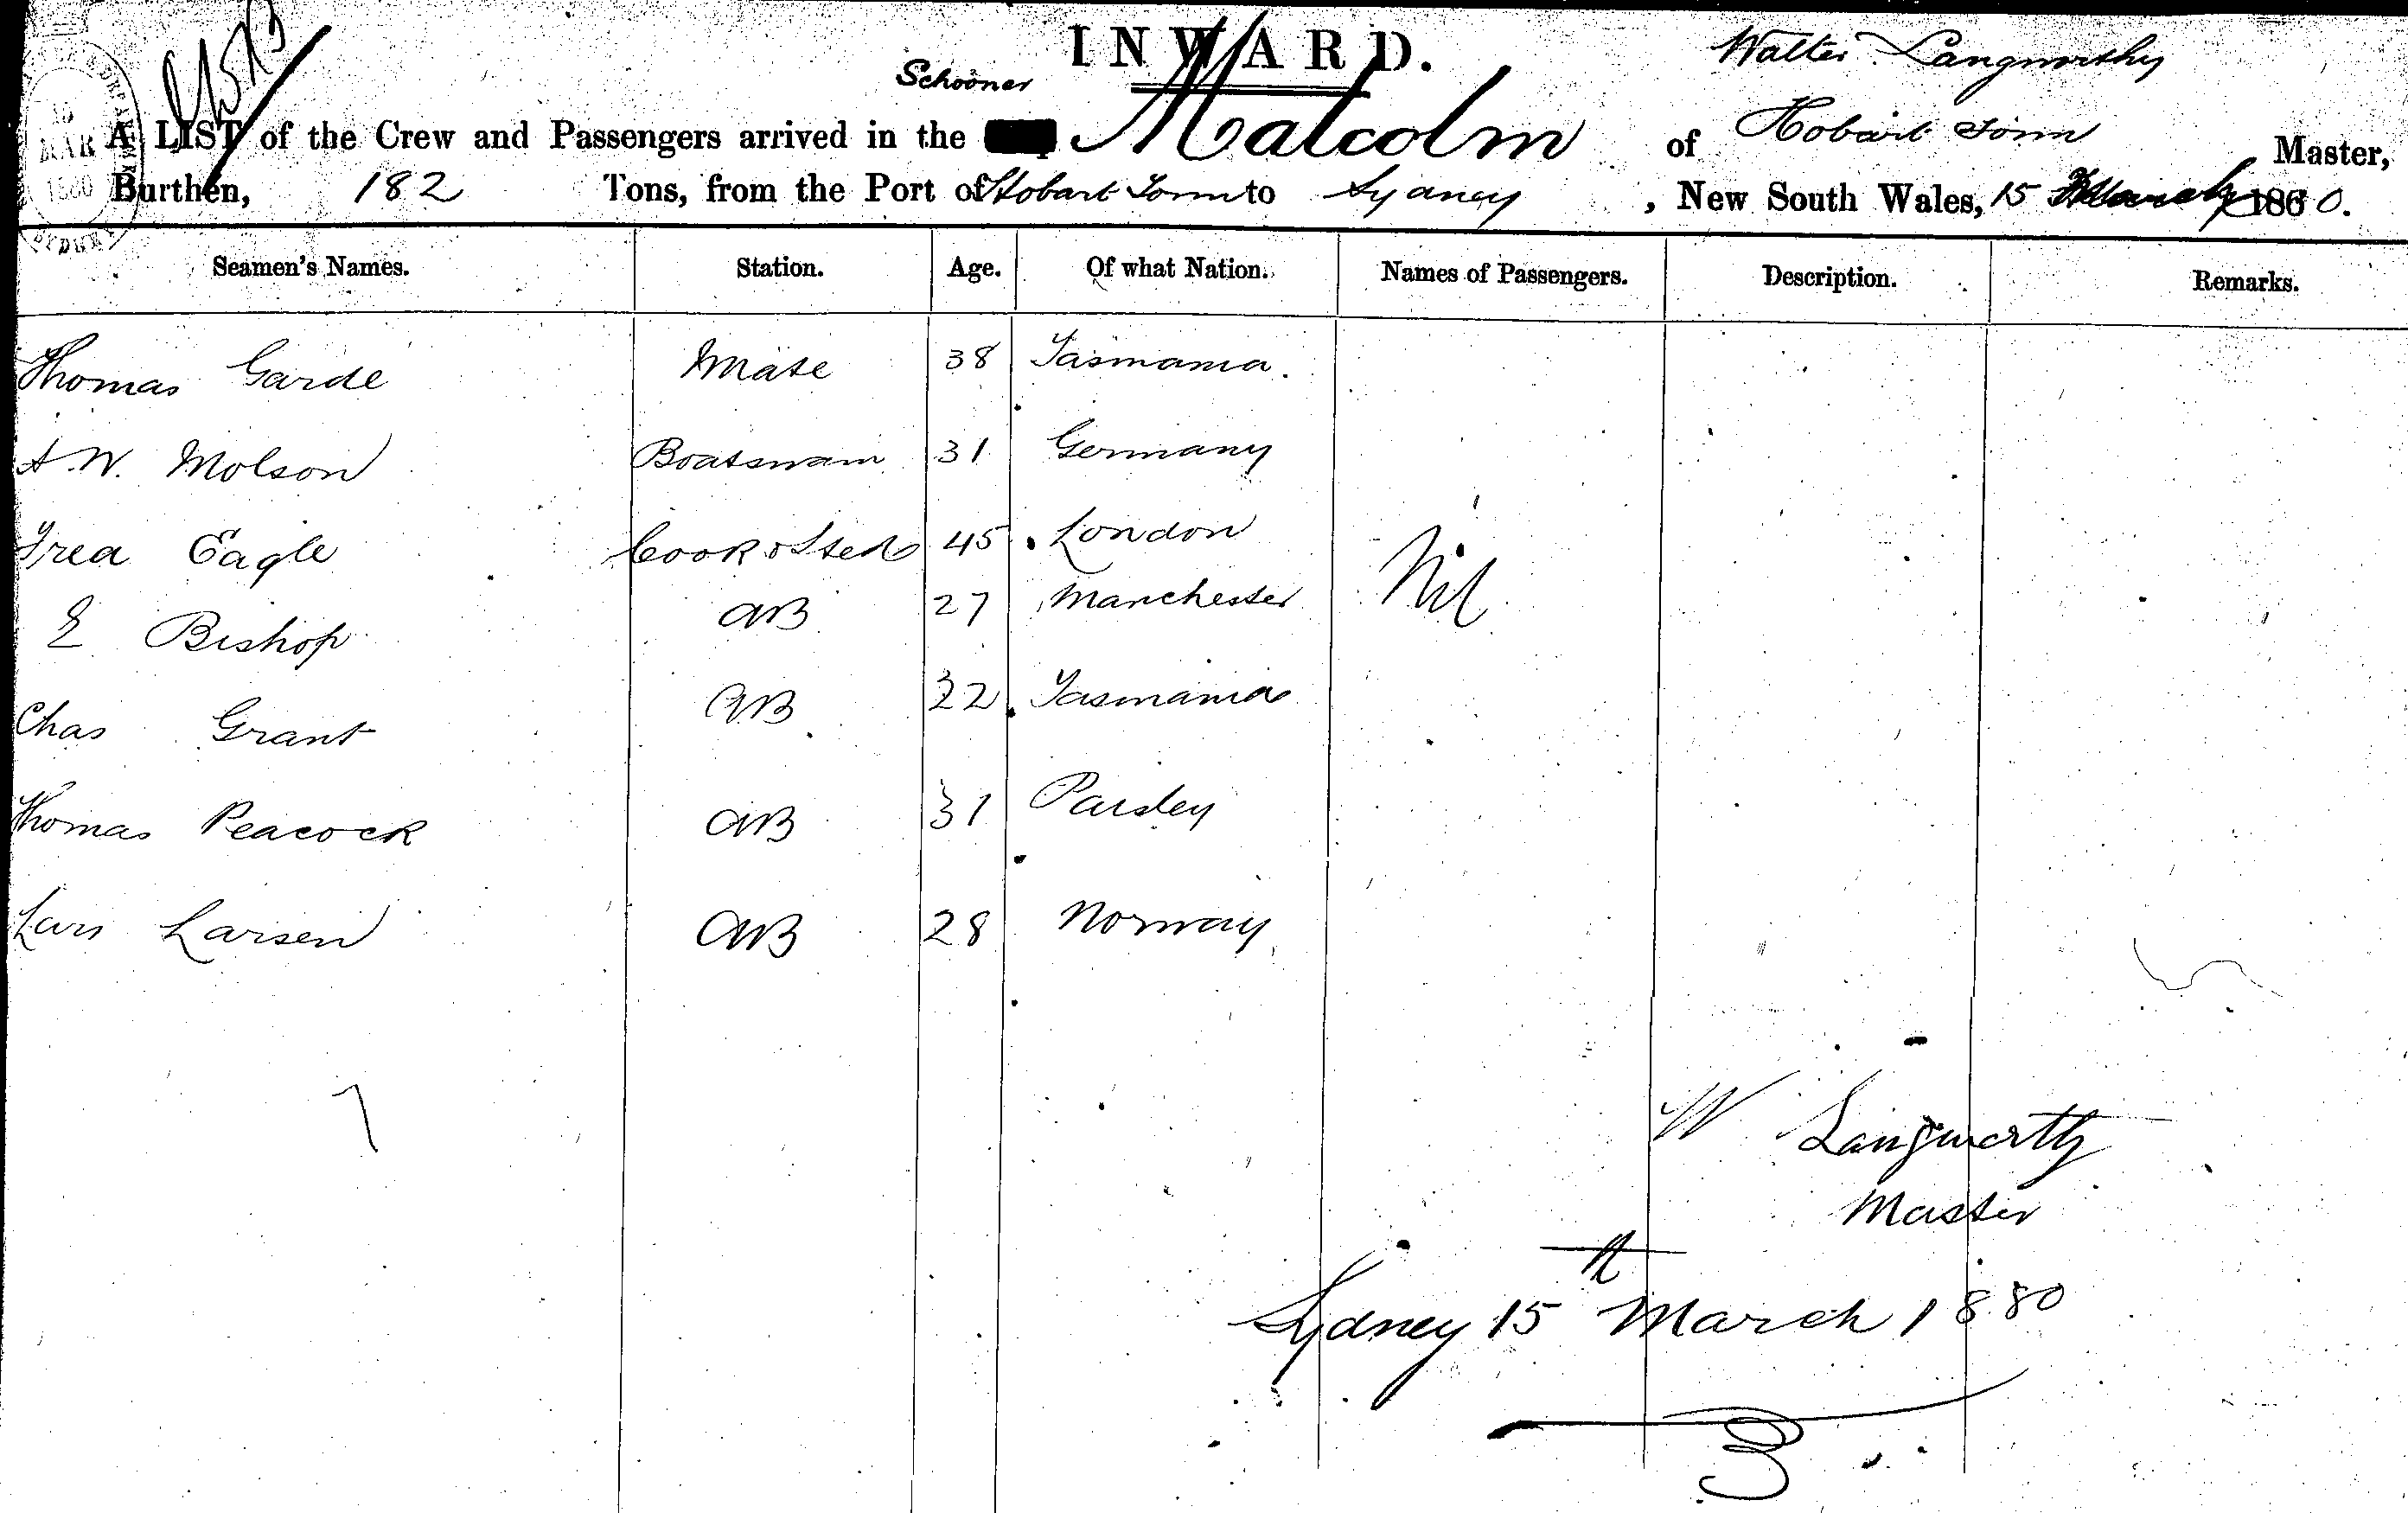 INWARD.
Walter Langworthy
Schooner
A LIST of the Crew and Passengers arrived in the Malcolm of Hobart Town Master,
Burthen, 182 Tons, from the Port of Hobart Town to Sydney, New South Wales, 15 March 1880.
Seamen's Names. Station. Age. Of what Nation. Names of Passengers. Description. Remarks.
Thomas Garde Mate 38 Tasmania.
A. W. Molson Boatswain 31 Germany
Fred Eagle Cook & Sted 45 London
Nil
E Bishop AB 27 Manchester
Chas Grant AB 22 Tasmania
Thomas Peacock AB 31 Paisley
Lars Larsen AB 28 Norway
7
W Langworthy
Master
Sydney 15th March 1880